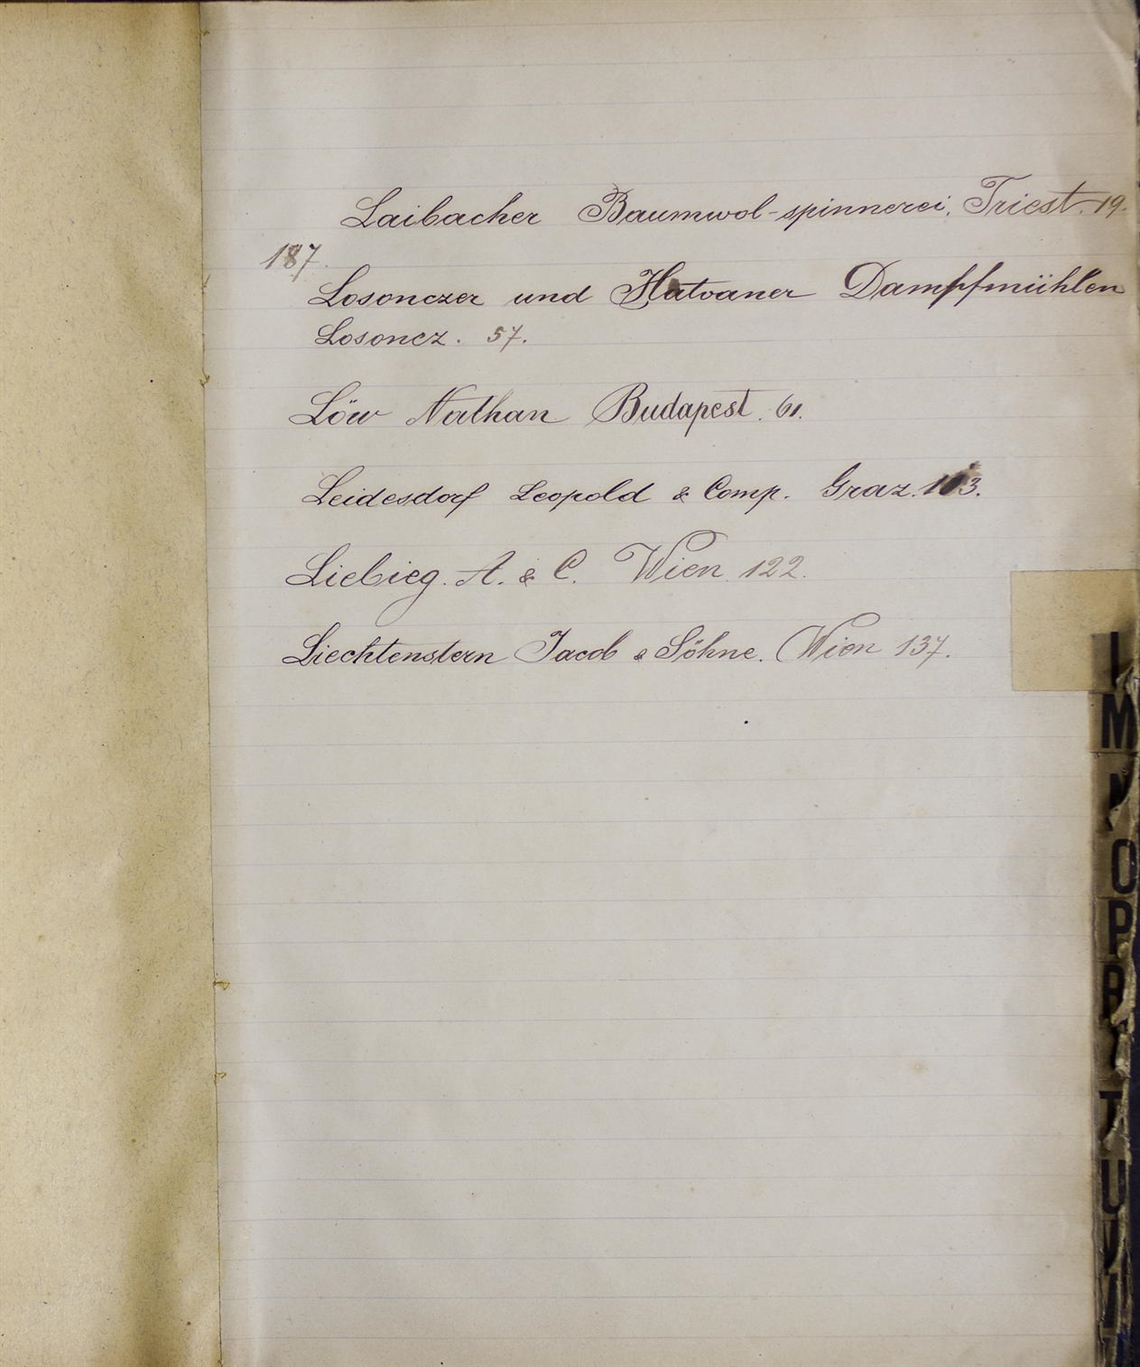 Laibacher Baumwol-spinnerei, Triest. 19.
187.
Losonczer und Hatvaner Dampfmühlen
Losoncz. 57.
Löw Nathan Budapest. 61.
Leidesdorf Leopold & Comp. Graz.
Liebieg. A. & C. Wien 122.
Liechtenstern Jacob & Söhne. Wien 137.
L
M
N
O
P
R
T
U